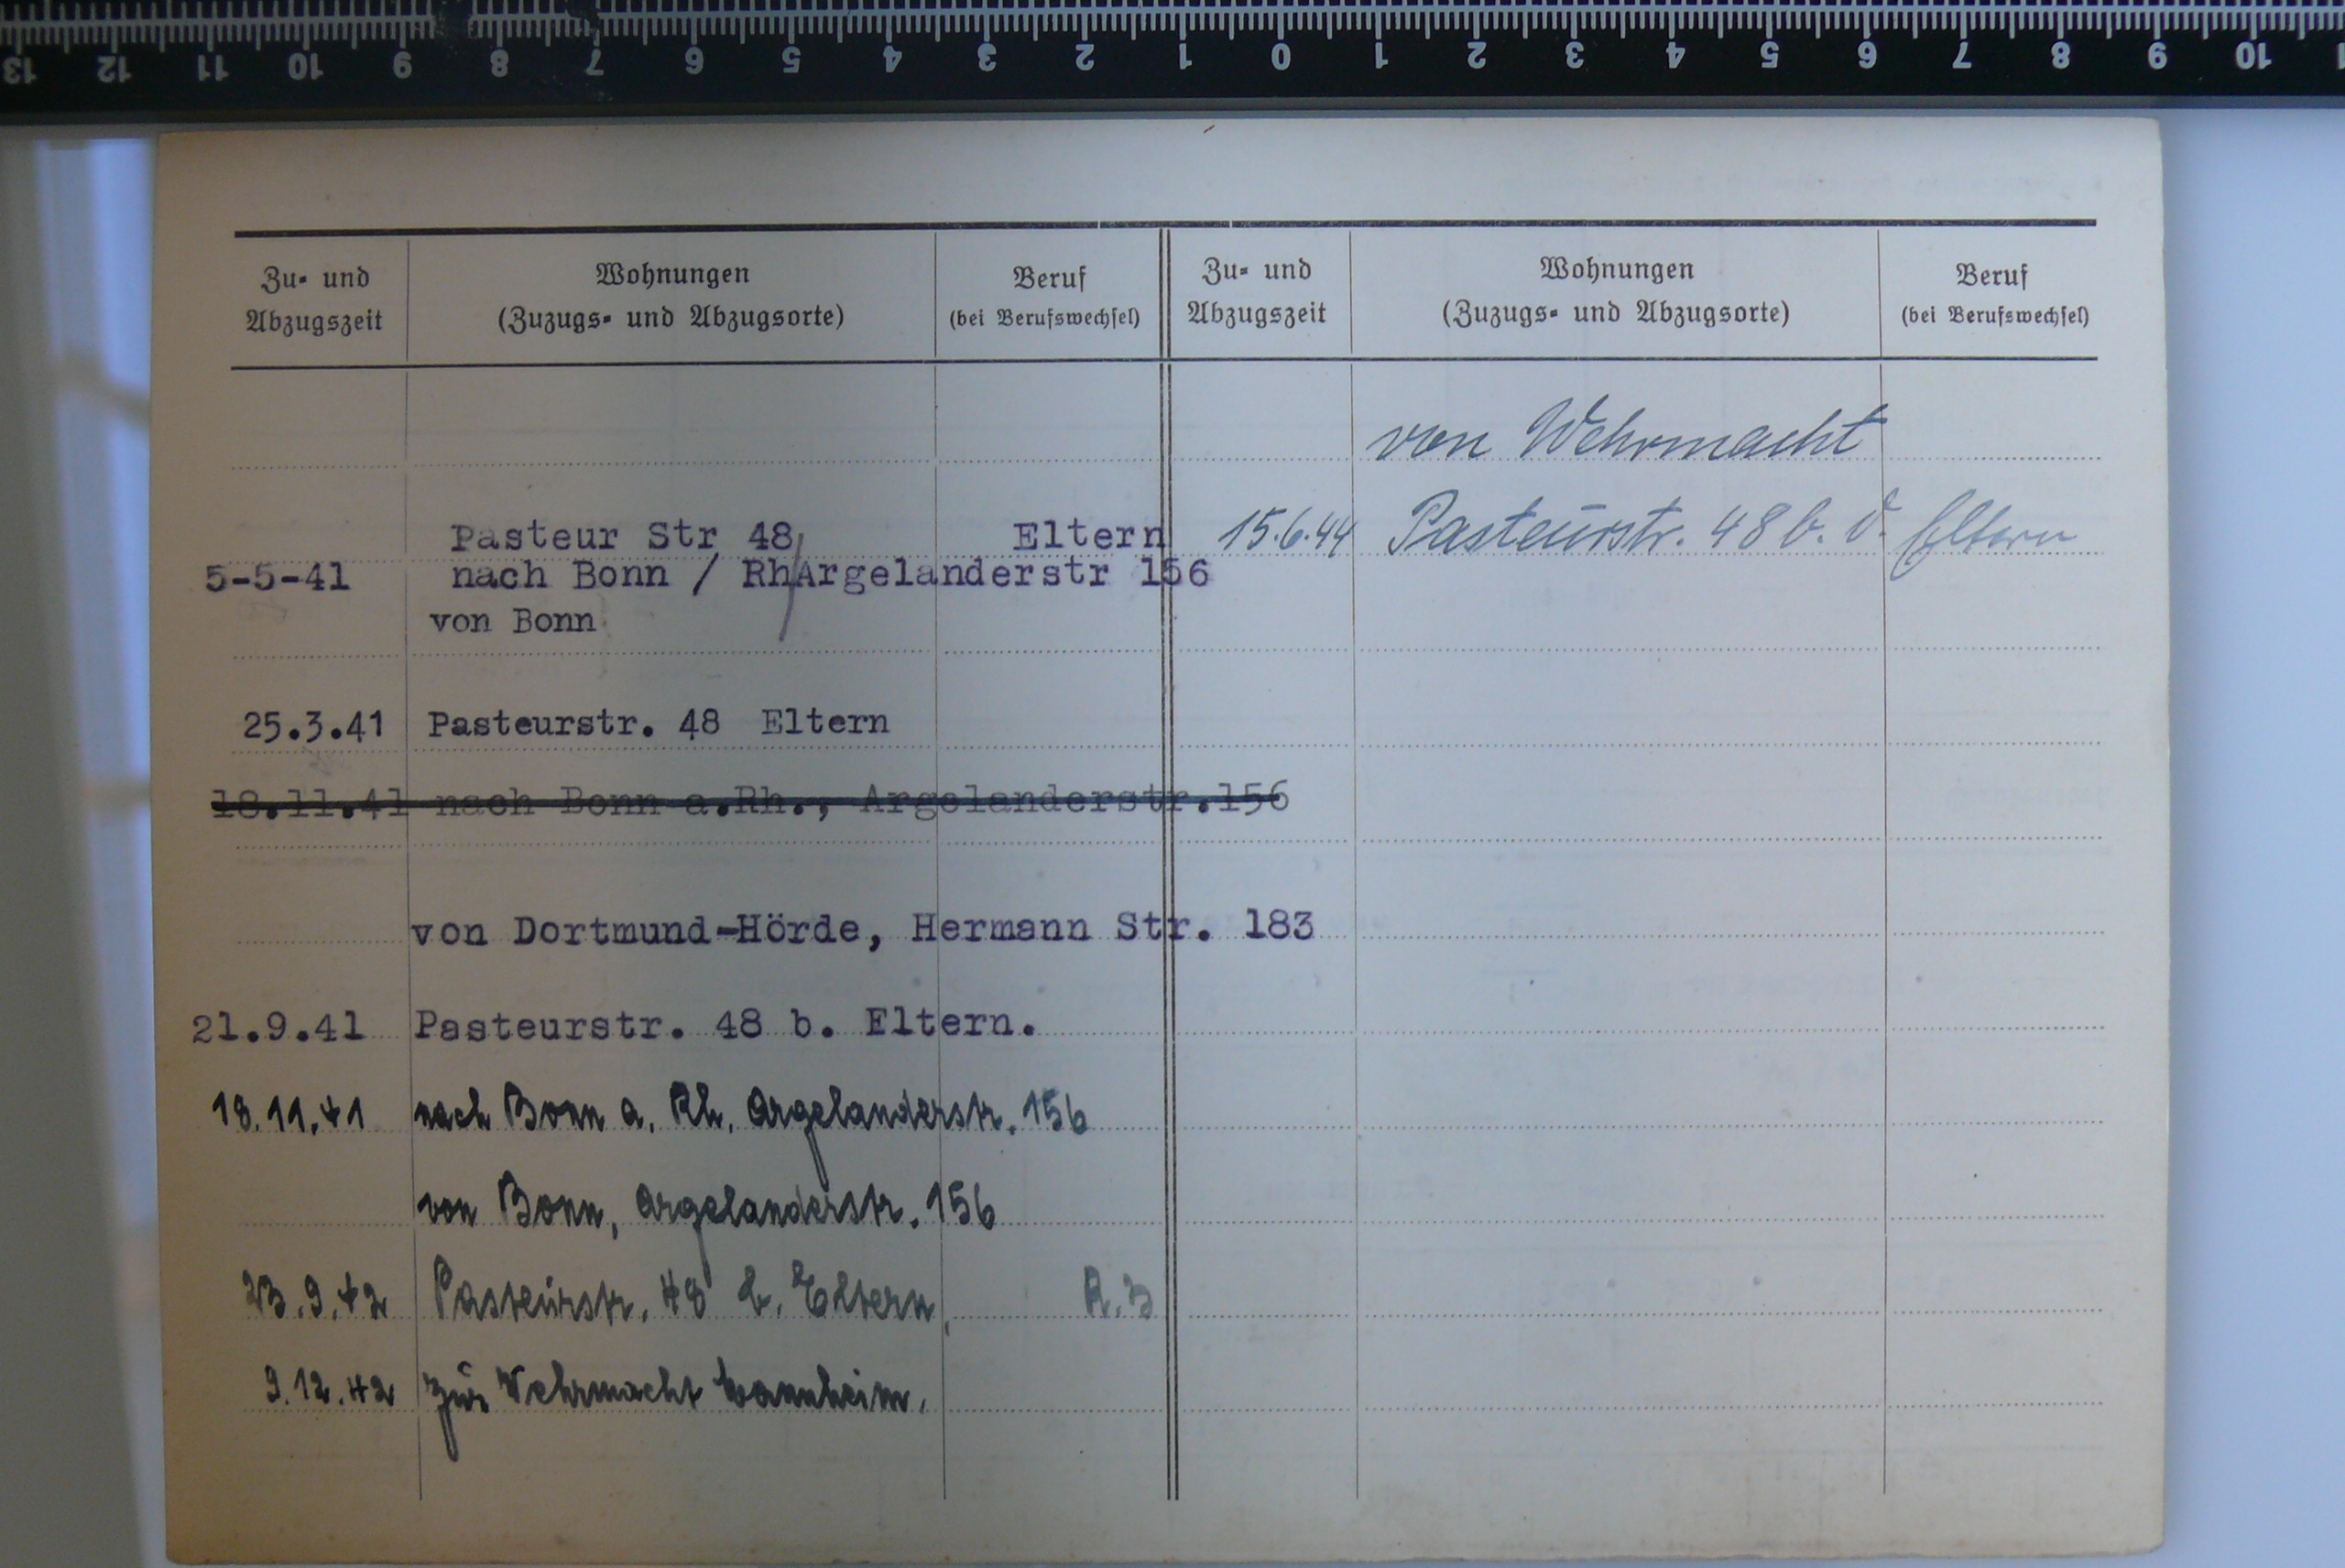 13 12 11 10 9 8 7 6 5 4 3 2 1 0 1 2 3 4 5 6 7 8 9 10
Zu- und
Abzugszeit
Wohnungen
(Zuzugs- und Abzugsorte)
Beruf
(bei Berufswechsel)
Pasteur Str 48 Eltern
5-5-41 nach Bonn / Rh Argelanderstr 156
von Bonn
25.3.41 Pasteurstr. 48 Eltern
18.11.41 nach Bonn a.Rh., Argelanderstr.156
von Dortmund-Hörde, Hermann Str. 183
21.9.41 Pasteurstr. 48 b. Eltern.
18.11.41 nach Bonn a. Rh. Argelanderstr. 156
von Bonn, Argelanderstr. 156
23.9.42 Pasteurstr. 48 b. Eltern, R.B
9.12.42 zur Wehrmacht
Zu- und
Abzugszeit
Wohnungen
(Zuzugs- und Abzugsorte)
Beruf
(bei Berufswechsel)
von Wehrmacht
15.6.44 Pasteurstr. 48 b. d. Eltern